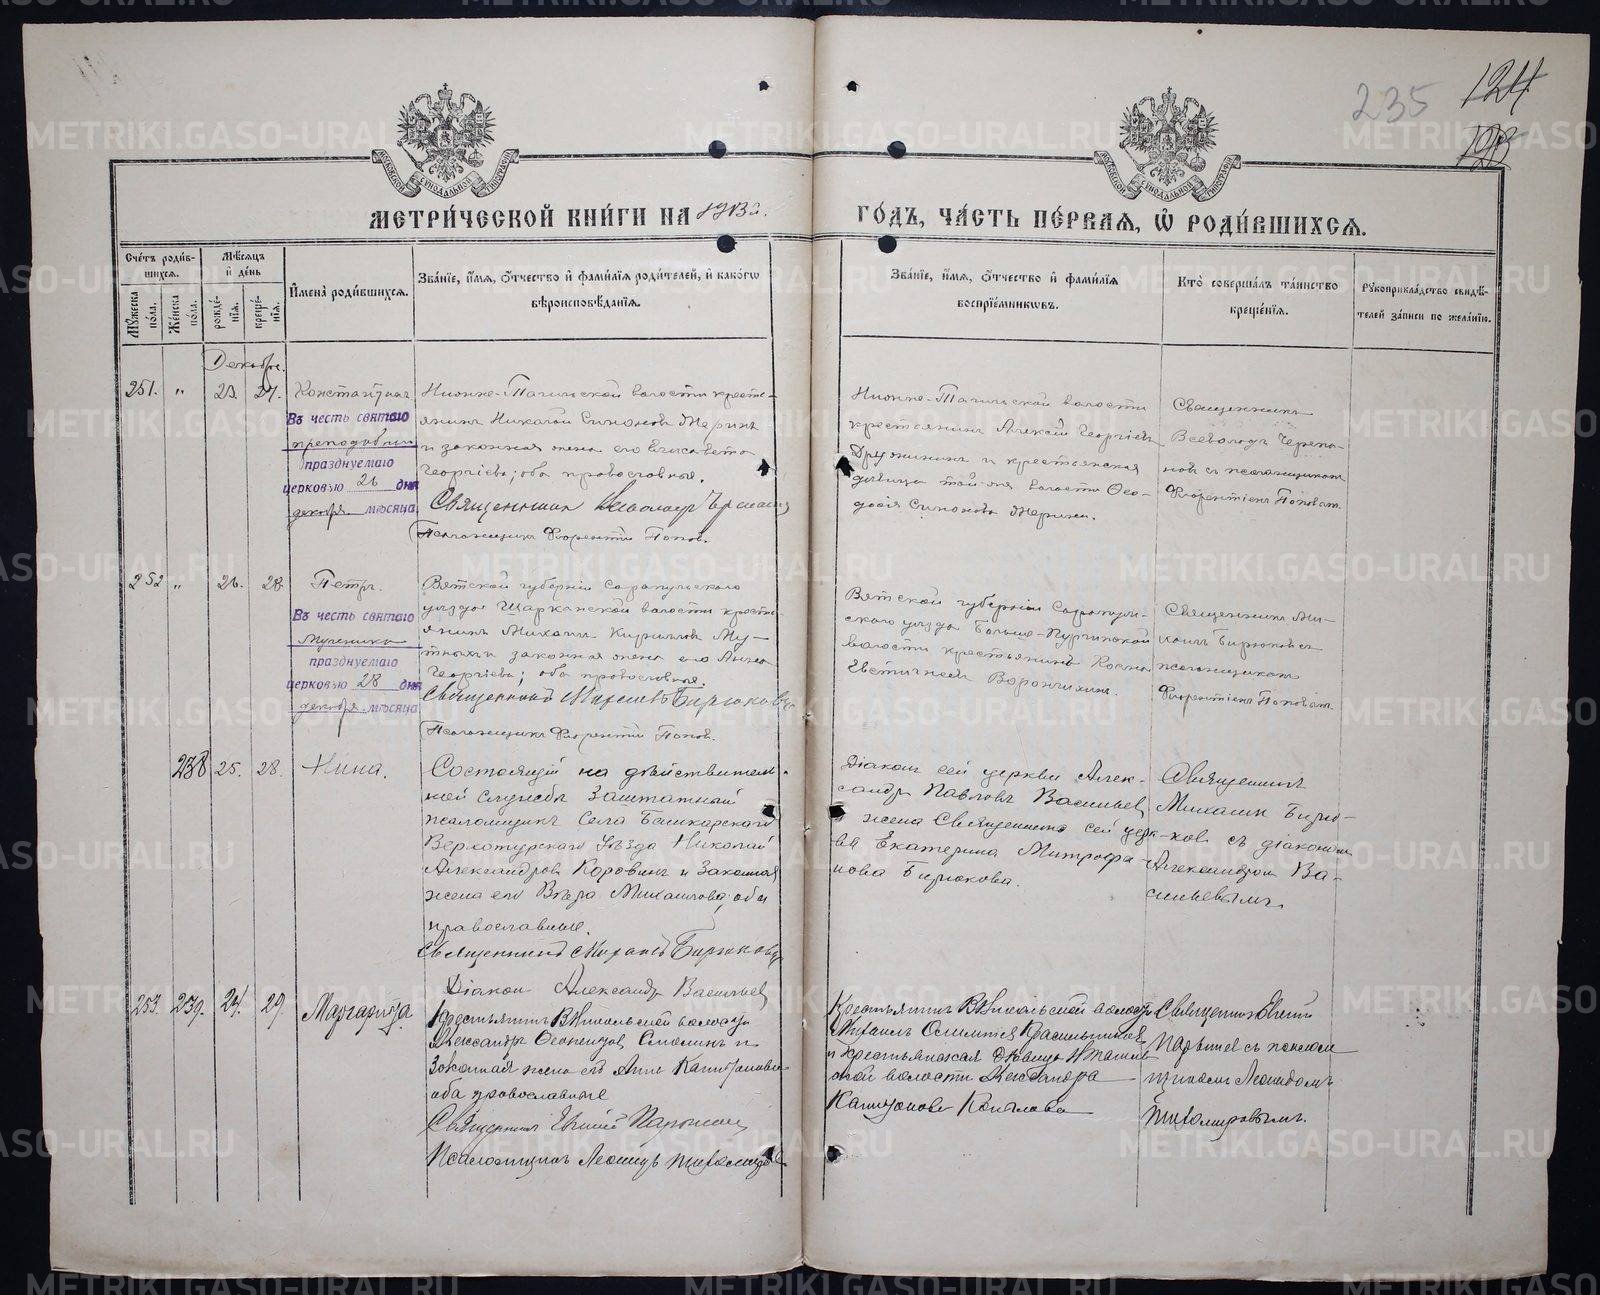 235
124
МЕТРИ́ЧЕСКОЙ КНИ́ГИ НА 1913й.
ГО́ДЪ, ЧА́СТЬ ПЕ́РВАЯ, Ѿ РОДИ́ВШИХСЯ.
Сче́тъ роди́в-
шихся.
Мꙋжеска по́ла.
Же́нска по́ла.
Мѣ́сяцъ
и҆ де́нь
рожде́-
нїя.
креще́-
нїя.
И҆мена̀ роди́вшихся.
Зва́нїе, и҆́мя, ѻ҆́тчество и҆ фами́лїя роди́телей, и҆ како́гѡ
вѣроисповѣ́данїя.
Зва́нїе, и҆́мя, ѻ҆́тчество и҆ фами́лїя
воспрїе́мникѡвъ.
Кто̀ соверша́лъ та́инство
креще́нїя.
Рꙋкоприкла́дство свидѣ́-
телей за́писи по жела́нїю.
Декабрь.
251. " 23. 27. Константинъ
Въ честь святаго
преподобн
празднуемаго
церковью 26 дня
декабря мѣсяца
Нижне-Тагильской волости кресть-
янинъ Николай Симоновъ Жеринъ
и законная жена его Елисавета
Георгіева; оба православные.
Священникъ Всеволодъ
Псаломщикъ Флорентій Поповъ.
Нижне-Тагильской волости
крестьянинъ Алексѣй Георгіевъ
Дружининъ и крестьянская
дѣвица той-же волости Ѳео-
досія Симонова Жерина.
Священникъ
Всеволодъ Черепа-
новъ съ псаломщикомъ
Флорентіемъ Поповымъ.
252 " 26. 28. Петръ.
Въ честь святаго
мученика
празднуемаго
церковью 28 дня
декабря мѣсяца
Вятской губерніи Сарапульскаго
уѣзда Шарканской волости кресть-
янинъ Михаилъ Кирилловъ Му-
законная жена его Анна
Георгіева; оба православные.
Священникъ Михаилъ Бирюковъ
Псаломщикъ Флорентій Поповъ.
Вятской губерніи Сарапуль-
скаго уѣзда Больше-Пургинской
волости крестьянинъ Косма
Евстигнеевъ Ворончихинъ.
Священникъ Ми-
хаилъ Бирюковъ съ
псаломщикомъ
Флорентіемъ Поповымъ.
238 25. 28. Нина.
Состоящій на дѣйствитель-
ной службѣ Заштатный
псаломщикъ Села Башкарскаго
Верхотурскаго Уѣзда Николай
Александровъ Коровинъ и Законная
жена его Вѣра Михаилова, оба
православные.
Священникъ Михаилъ Бирюковъ
Діаконъ Александръ Васильевъ
Діаконъ сей церкви Алек-
сандръ Павловъ Васильевъ
и жена Священника сей церк-
ви Екатерина Митрофа-
нова Бирюкова.
Священникъ
Михаилъ Бирю-
ковъ съ діакономъ
Александромъ Ва-
сильевымъ.
253. 239. 24. 29. Маргарита.
Крестьянинъ В Никольской волости
Александръ Смолинъ и
Законная жена его Анна Капитонова
оба православные
Священникъ Евгеній
Псаломщикъ Леонидъ Тихомировъ
Крестьянинъ В Никольской волости
Михаилъ Красильниковъ
и Крестьянская дѣвица
ской волости Александра
Капитонова Копылова
Священникъ Евгеній
съ псалом
щикомъ Леонидомъ
Тихомировымъ.